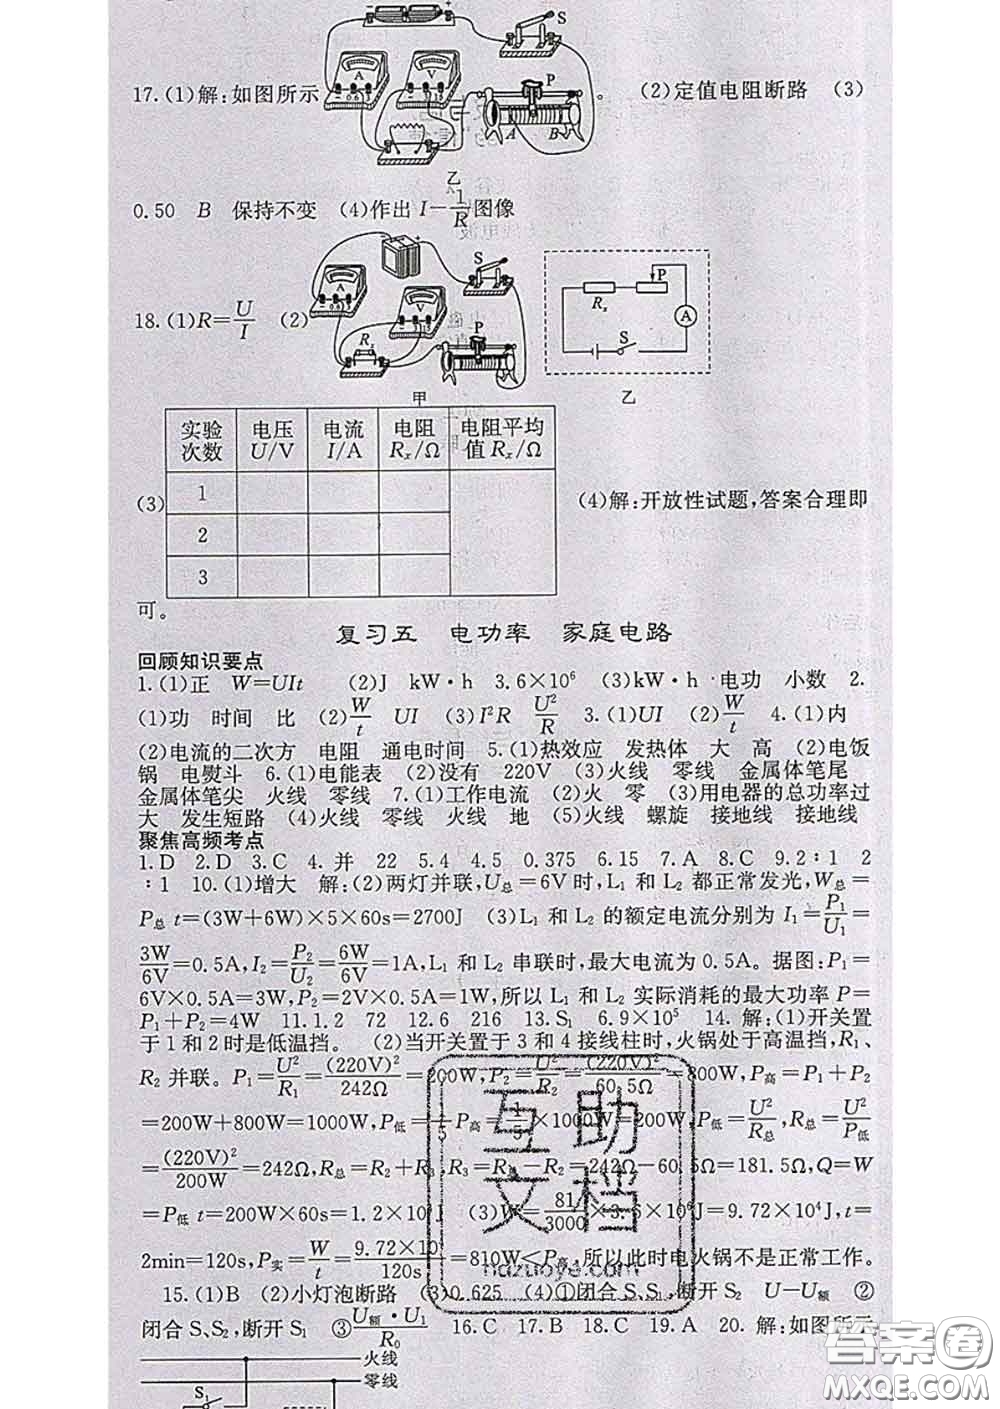 17.(1)解:如图所示 。 (2)定值电阻断路 (3)
乙
0.50 B 保持不变 (4)作出 I-1/R图像
18.(1)R=U/I (2)
甲 乙
实验次数 电压U/V 电流I/A 电阻Rx/Ω 电阻平均值Rx/Ω
1
(3) (4)解:开放性试题,答案合理即
2
3
可。
复习五 电功率 家庭电路
回顾知识要点
1.(1)正 W=UIt (2)J kW·h 3.6×10⁶ (3)kW·h 电功 小数 2.
(1)功 时间 比 (2)W/t UI (3)I²R U²/R 3.(1)UI (2)W/t 4.(1)内
(2)电流的二次方 电阻 通电时间 5.(1)热效应 发热体 大 高 (2)电饭
锅 电熨斗 6.(1)电能表 (2)没有 220V (3)火线 零线 金属体笔尾
金属体笔尖 火线 零线 7.(1)工作电流 (2)火 零 (3)用电器的总功率过
大 发生短路 (4)火线 零线 火线 地 (5)火线 螺旋 接地线 接地线
聚焦高频考点
1.D 2.D 3.C 4.并 22 5.4 4.5 0.375 6.15 7.A 8.C 9.2∶1 2
∶1 10.(1)增大 解:(2)两灯并联,U总=6V时,L₁ 和 L₂ 都正常发光,W总=
P总 t=(3W+6W)×5×60s=2700J (3)L₁ 和 L₂ 的额定电流分别为 I₁=P₁/U₁=
3W/6V=0.5A,I₂=P₂/U₂=6W/6V=1A,L₁ 和 L₂ 串联时,最大电流为 0.5A。据图:P₁=
6V×0.5A=3W,P₂=2V×0.5A=1W,所以 L₁ 和 L₂ 实际消耗的最大功率 P=
P₁+P₂=4W 11.1.2 72 12.6 216 13.S₁ 6.9×10⁵ 14. 解:(1)开关置
于 1 和 2 时是低温挡。 (2)当开关置于 3 和 4 接线柱时,火锅处于高温挡,R₁、
R₂ 并联。P₁=U²/R₁=(220V)²/242Ω=200W,P₂=U²/R₂=(220V)²/60.5Ω=800W,P高=P₁+P₂
=200W+800W=1000W,P低=1/5 P高=1/5×1000W=200W,P低=U²/R总,R总=U²/P低
=(220V)²/200W=242Ω,R总=R₂+R₃,R₃=R总-R₂=242Ω-60.5Ω=181.5Ω,Q=W
=P低 t=200W×60s=1.2×10⁴J (3)W=81/3000×3.6×10⁶J=9.72×10⁴J,t=
2min=120s,P实=W/t=9.72×10⁴/120s=810W<P高,所以此时电火锅不是正常工作。
15.(1)B (2)小灯泡断路 (3)0.625 (4)①闭合 S、S₁,断开 S₂ U-U额 ②
闭合 S、S₂,断开 S₁ ③U额·U₁/R₀ 16.C 17.B 18.C 19.A 20. 解:如图所示
火线
零线
S₁
互助文档
nazuoye.com
答案圈
MXQE.COM